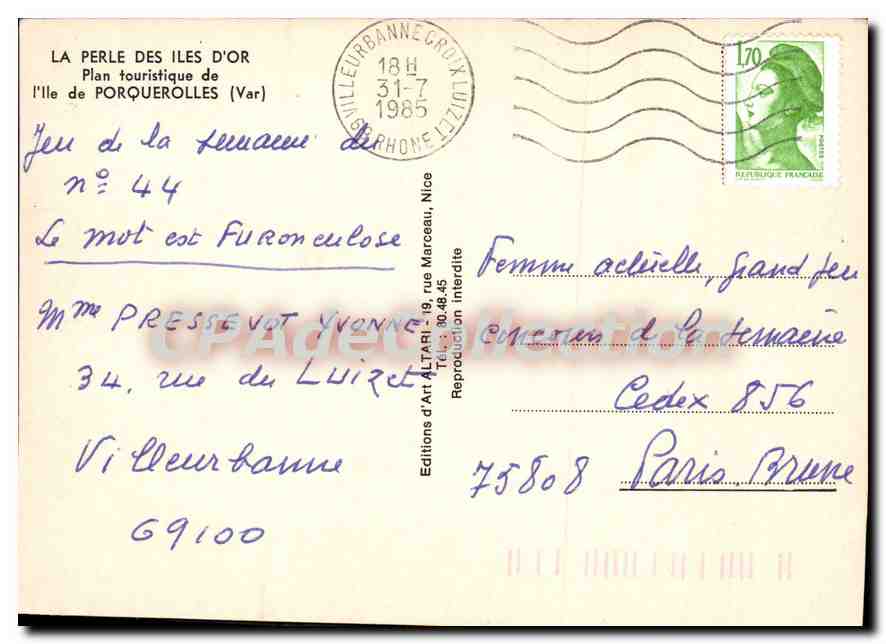 LA PERLE DES ILES D'OR
Plan touristique de
l'Ile de PORQUEROLLES (Var)
VILLEURBANNE CROIX LUIZET
18 H
31-7
1985
69 RHONE
1,70
POSTES
REPUBLIQUE FRANÇAISE
Jeu de la semaine du
n° 44
Le mot est FURONCULOSE
Mme PRESSEVOT YVONNE
34, rue du LUIZET
Villeurbanne
69100
Editions d'Art ALTARI - 19, rue Marceau, Nice
Tél. : 80.48.45
Reproduction interdite
Femme actuelle, grand jeu
concours d la semaine
Cedex 856
75808 Paris, Brune
CPAdeCollection